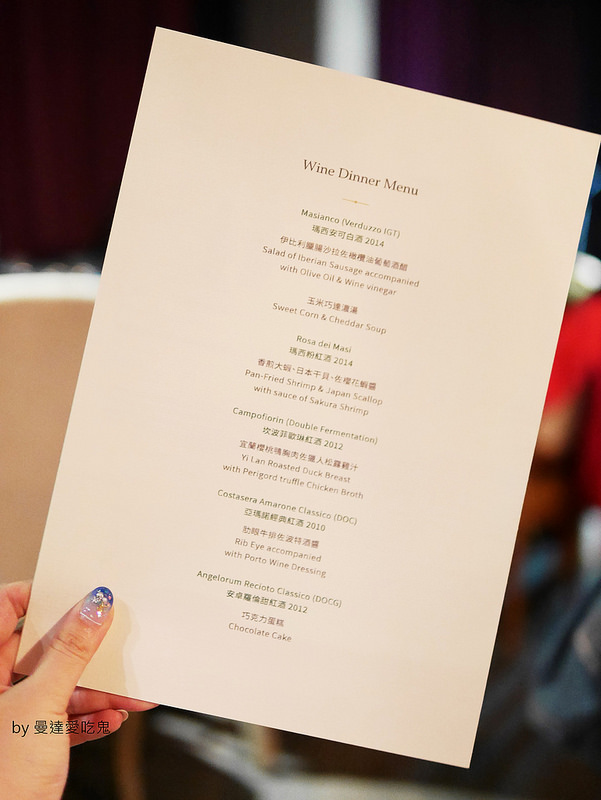 Wine Dinner Menu
Masianco (Verduzzo IGT)
瑪西安可白酒 2014
伊比利臘腸沙拉佐橄欖油葡萄酒醋
Salad of Iberian Sausage accompanied
with Olive Oil & Wine vinegar
玉米巧達濃湯
Sweet Corn & Cheddar Soup
Rosa dei Masi
瑪西粉紅酒 2014
香煎大蝦、日本干貝、佐櫻花蝦醬
Pan-Fried Shrimp & Japan Scallop
with sauce of Sakura Shrimp
Campofiorin (Double Fermentation)
坎波菲歐琳紅酒 2012
宜蘭櫻桃鴨胸肉佐獵人松露雞汁
Yi Lan Roasted Duck Breast
with Perigord truffle Chicken Broth
Costasera Amarone Classico (DOC)
亞瑪諾經典紅酒 2010
肋眼牛排佐波特酒醬
Rib Eye accompanied
with Porto Wine Dressing
Angelorum Recioto Classico (DOCG)
安卓羅倫甜紅酒 2012
巧克力蛋糕
Chocolate Cake
by 曼達愛吃鬼